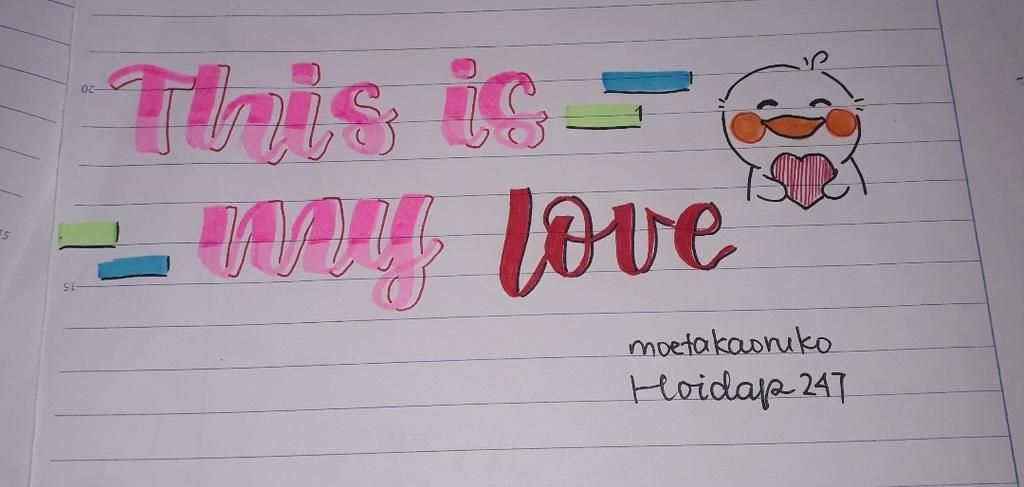 This is
my love
moetakaoruko
Hoidap247
20
15
15